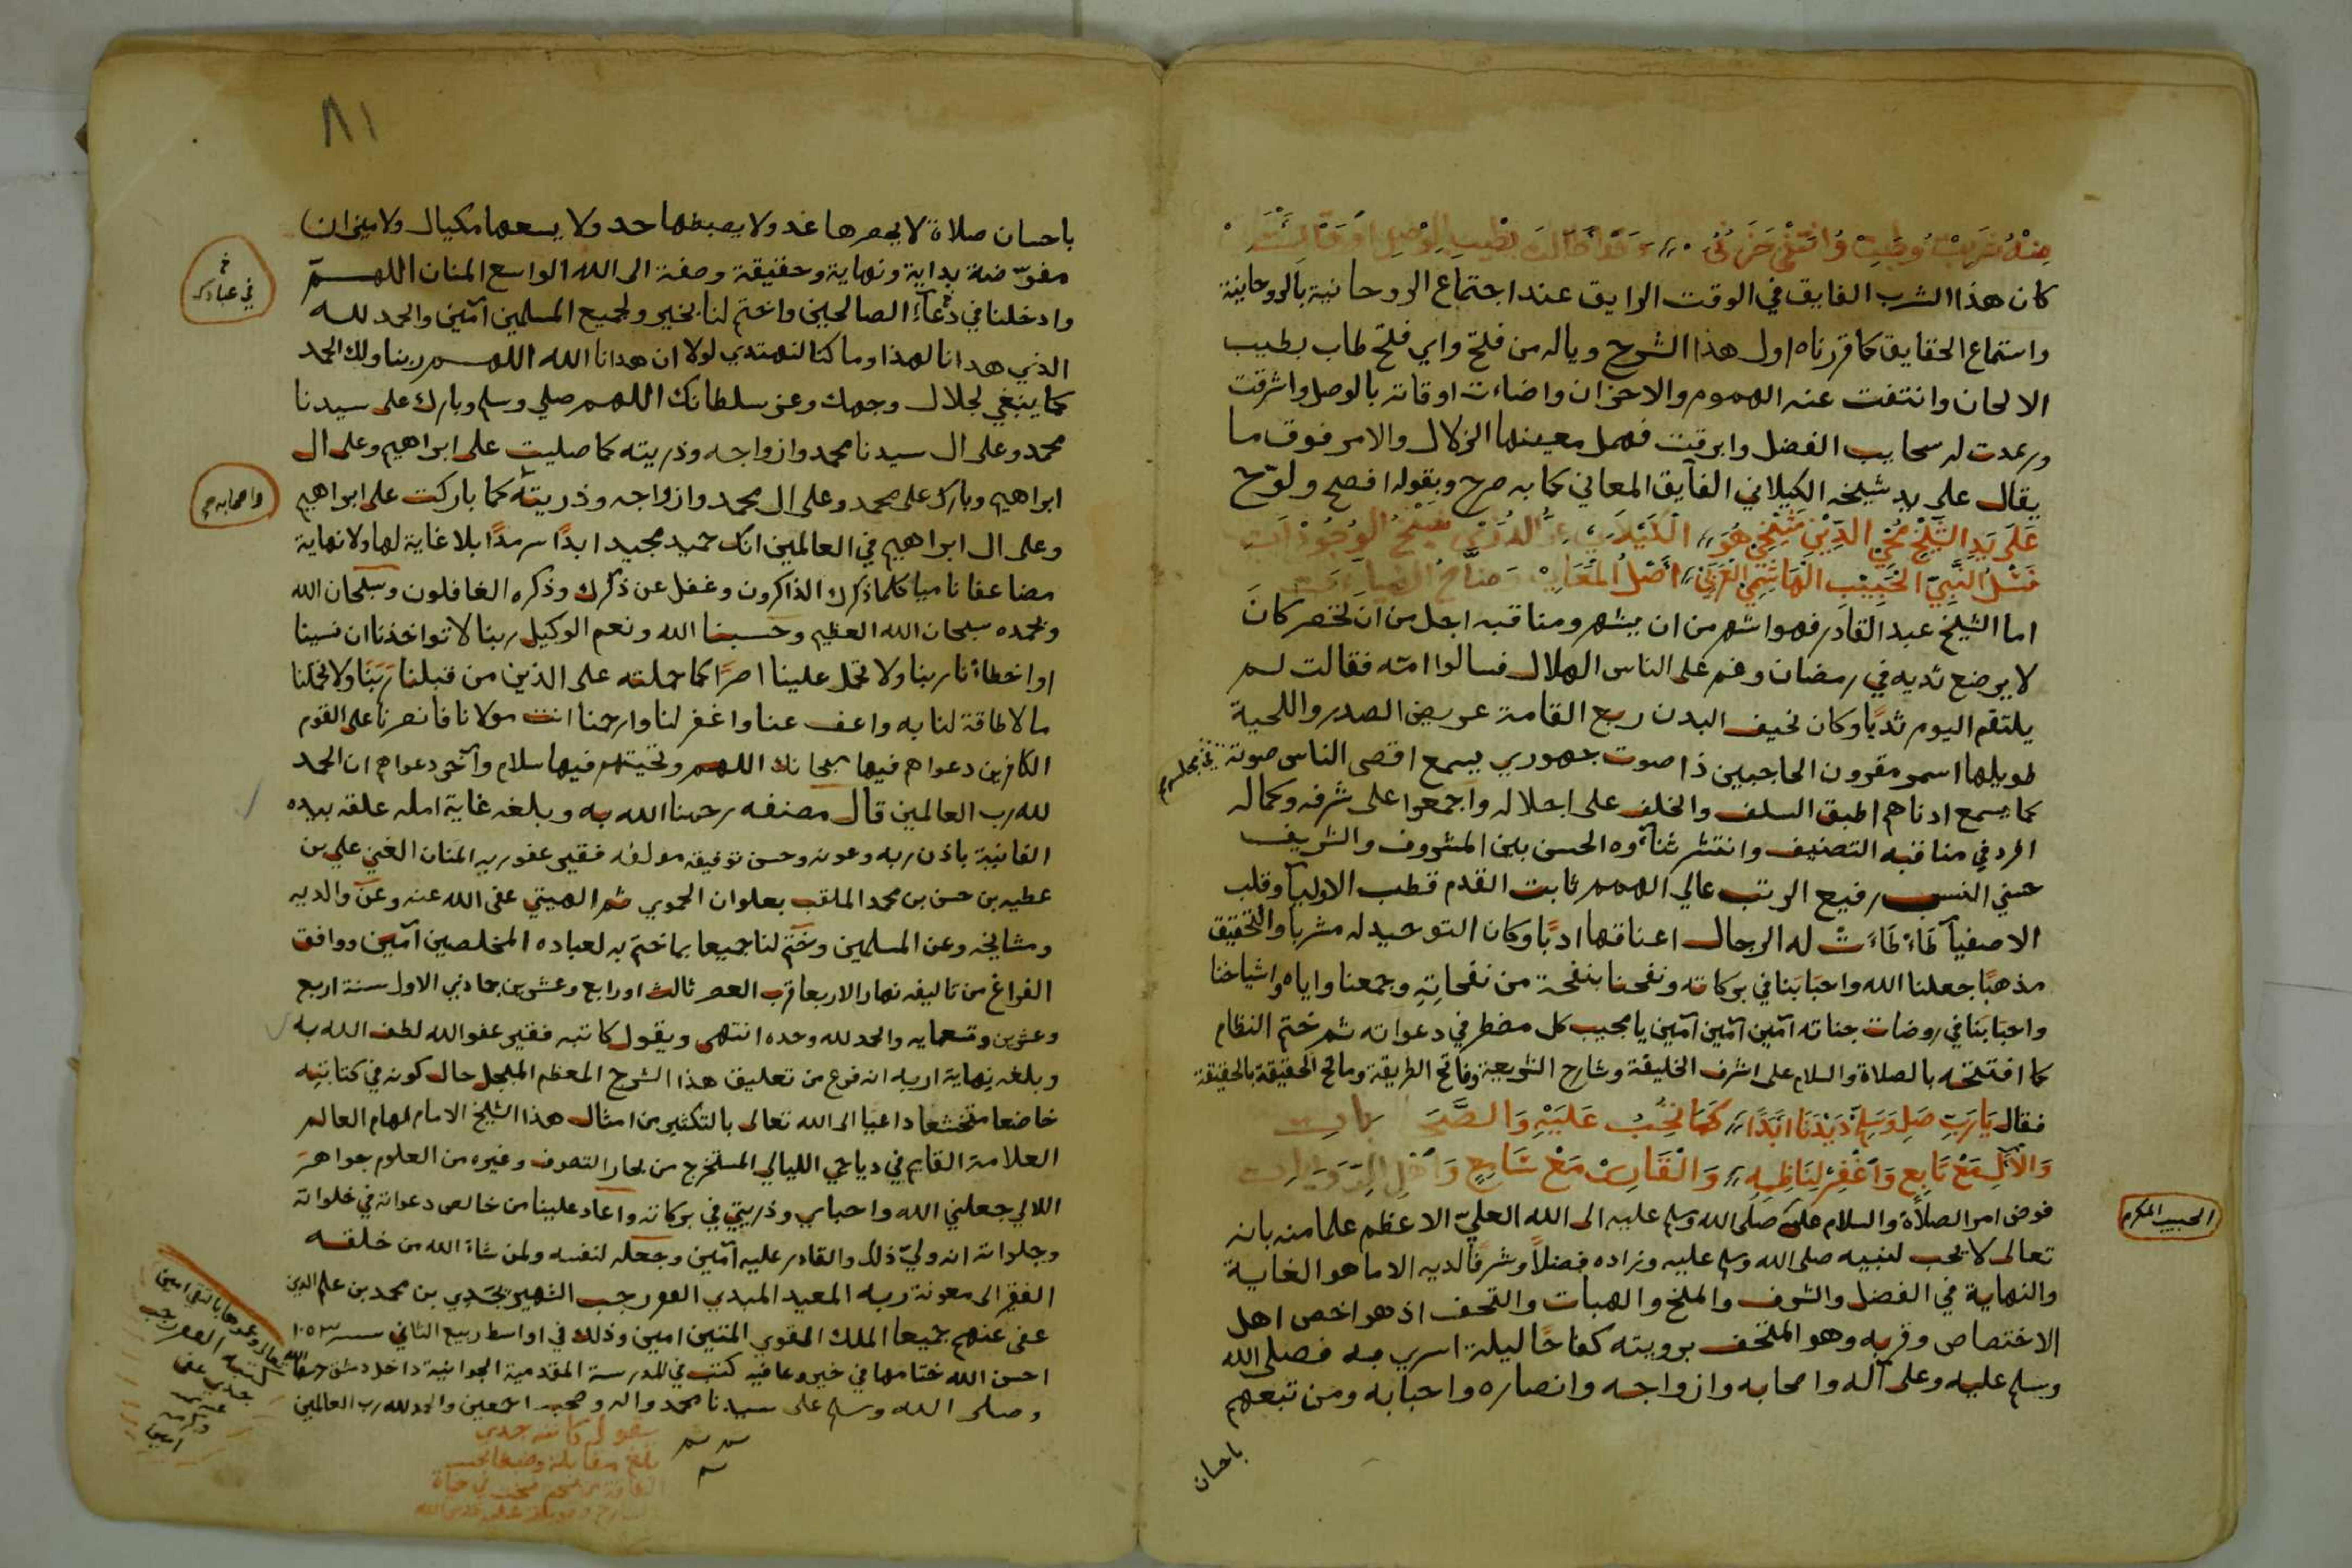 منه شربت وطبت وانتفى حزني وقد اضاالت بطيب الوصل اوقاتي
كان هذا الشرب الفايق في الوقت الرايق عند اجتماع الروحانية بالروحانية
واستماع الحقايق كما قررناه اول هذا الشرح وياله من فلتح واي فلتح طاب بطيب
الالحان وانتفت عنه الهموم والاحزان واضاءت اوقاته بالوصل واشرقت
ورعدت له سحايب الفضل وابرقت فهمل معينها الزلال والامر فوق ما
يقال على يد شيخه الكيلاني الفايق المعاني كما به صرح وبقوله افصح ولوّح
على يد الشيخ محي الدين شيخي هو الكيلاني
نسل النبي الحبيب الهاشمي العربي اصل المعاني
اما الشيخ عبد القادر فهو اشهر من ان يشهر ومناقبه اجل من ان تحصر كان
لا يرضع ثديه في رمضان وغم على الناس الهلال فسالوا امه فقالت لهم
يلتقم اليوم ثديًا وكان نحيف البدن ربع القامة عريض الصدر واللحية
طويلها اسمر مقرون الحاجبين ذا صوت جهوري يسمع اقصى الناس صوته في مجلسه
كما يسمع ادناهم اطبق السلف والخلف على اجلاله واجمعوا على شرفه وكماله
افرد في مناقبه التصنيف وانتشر ثناؤه الحسن بين المشروف والشريف
حسني النسب رفيع الرتب عالي الهمم ثابت القدم قطب الاوليآ وقلب
الاصفيآ طاءطاءت له الرجال اعناقها ادبًا وكان التوحيد له مشربا والتحقيق
مذهبًا جعلنا الله واحبابنا في بركاته ونفحنا بنفحة من نفحاته وجمعنا واياه واشياخنا
واحبابنا في روضات جناته آمين آمين آمين يا مجيب كل مضطر في دعواته ثم ختم النظام
كما افتتحه بالصلاة والسلام على اشرف الخليقة وشارح الشريعة وفاتح الطريقة ومانح الحقيقة بالحقيقة
فقال يا رب صل وسلم ديدنا ابدا كما تحب عليه والصحب
والآل مع تابع واغفر لناظمه والقارئ مع شارح واهل
فوض امر الصلاة والسلام عليه صلى الله وسلم عليه الى الله العلي الاعظم علما منه بانه
الحبيب المكرم
تعالى لا يحب لنبيه صلى الله وسلم عليه وزاده فضلاً وشرفا لديه الا ما هو الغاية
والنهاية في الفضل والشرف والمنح والهبات والتحف اذ هو اخص اهل
الاختصاص وقربه وهو المتحف برويته كفاحًا ليلة اسري به فصلى الله
وسلم عليه وعلى آله واصحابه وازواجه وانصاره واحبابه ومن تبعهم
باحسان
٨١
باحسان صلاة لا يحصرها عد ولا يضبطها حد ولا يسعها مكيال ولا ميزان
مفوّضة بداية ونهاية وحقيقة وصفة الى الله الواسع المنان اللهم
في عبادك
وادخلنا في دعآء الصالحين واختم لنا بخير ولجميع المسلمين آمين والحمد لله
الذي هدانا لهذا وما كنا لنهتدي لولا ان هدانا الله اللهم ربنا ولك الحمد
كما ينبغي لجلال وجهك وعز سلطانك اللهم صلي وسلم وبارك على سيدنا
محمد وعلى ال سيدنا محمد وازواجه وذريته كما صليت على ابراهيم وعلى ال
واصحابه
ابراهيم وبارك على محمد وعلى ال محمد وازواجه وذريته كما باركت على ابراهيم
وعلى ال ابراهيم في العالمين انك حميد مجيد ابدًا سرمدًا بلا غاية لها ولا نهاية
مضاعفا ناميا كلما ذكرك الذاكرون وغفل عن ذكرك وذكره الغافلون وسبحان الله
وبحمده سبحان الله العظيم وحسبنا الله ونعم الوكيل ربنا لا تواخذنا ان نسينا
او اخطأنا ربنا ولا تحمل علينا اصرًا كما حملته على الذين من قبلنا ربنا ولا تحملنا
ما لا طاقة لنا به واعف عنا واغفر لنا وارحمنا انت مولانا فانصرنا على القوم
الكافرين دعواهم فيها سبحانك اللهم وتحيتهم فيها سلام وآخر دعواهم ان الحمد
لله رب العالمين قال مصنفه رحمنا الله به وبلغه غاية امله علقه بيده
الفانية باذن ربه وعونه وحسن توفيقه مولفه فقير عفو ربه المنان الغني علي بن
عطيه بن حسن بن محمد الملقب بعلوان الحموي ثم الهيتي عفى الله عنه وعن والديه
ومشايخه وعن المسلمين وختم لنا جميعا بما ختم به لعباده المخلصين آمين ووافق
الفراغ من تاليفه نهار الاربعا قرب العصر ثالث او رابع وعشرين جمادى الاول سنة اربع
وعشرين وتسعمايه والحمد لله وحده انتهى ويقول كاتبه فقير عفو الله لطف الله به
وبلغه نهاية اربه انه فرغ من تعليق هذا الشرح المعظم المبجل حال كونه في كتابته
خاضعا متخشعا داعيا الى الله تعالى بالتكثير من امثال هذا الشيخ الامام الهمام العالم
العلامة القايم في دياجي الليالي المستخرج من بحار التصوف وغيره من العلوم جواهر
اللالي جعلني الله واحبابي وذريتي في بركاته واعاد علينا من خالص دعواته في خلواته
وجلواته انه وليّ ذلك والقادر عليه آمين وجعله لنفسه ولمن شاء الله من خلقه
الفقير الى معونة ربه المعيد المبدي رجب الشهير بجدي بن محمد بن علم الدين
عفى عنهم جميعا الملك القوي المتين امين وذلك في اواسط ربيع الثاني سنة ١٠٥٣
احسن الله ختامها في خير وعافيه كتب في المدرسة المقدمية الجوانية داخل دمشق
وصلى الله وسلم على سيدنا محمد واله وصحبه اجمعين والحمد لله رب العالمين
يقول كاتبه جدي
بلغ مقابلة